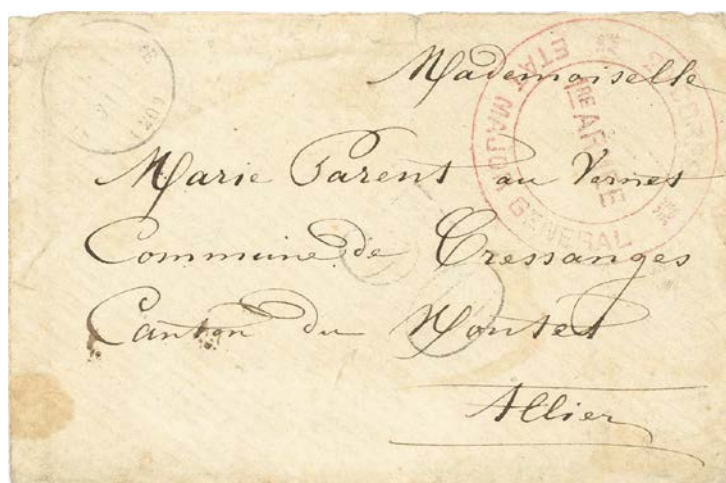 Mademoiselle
Marie Parent au Vernes
Commune de Cressanges
Canton du Montet
Allier
CORPS
ETAT MAJOR GENERAL
1RE ARMEE